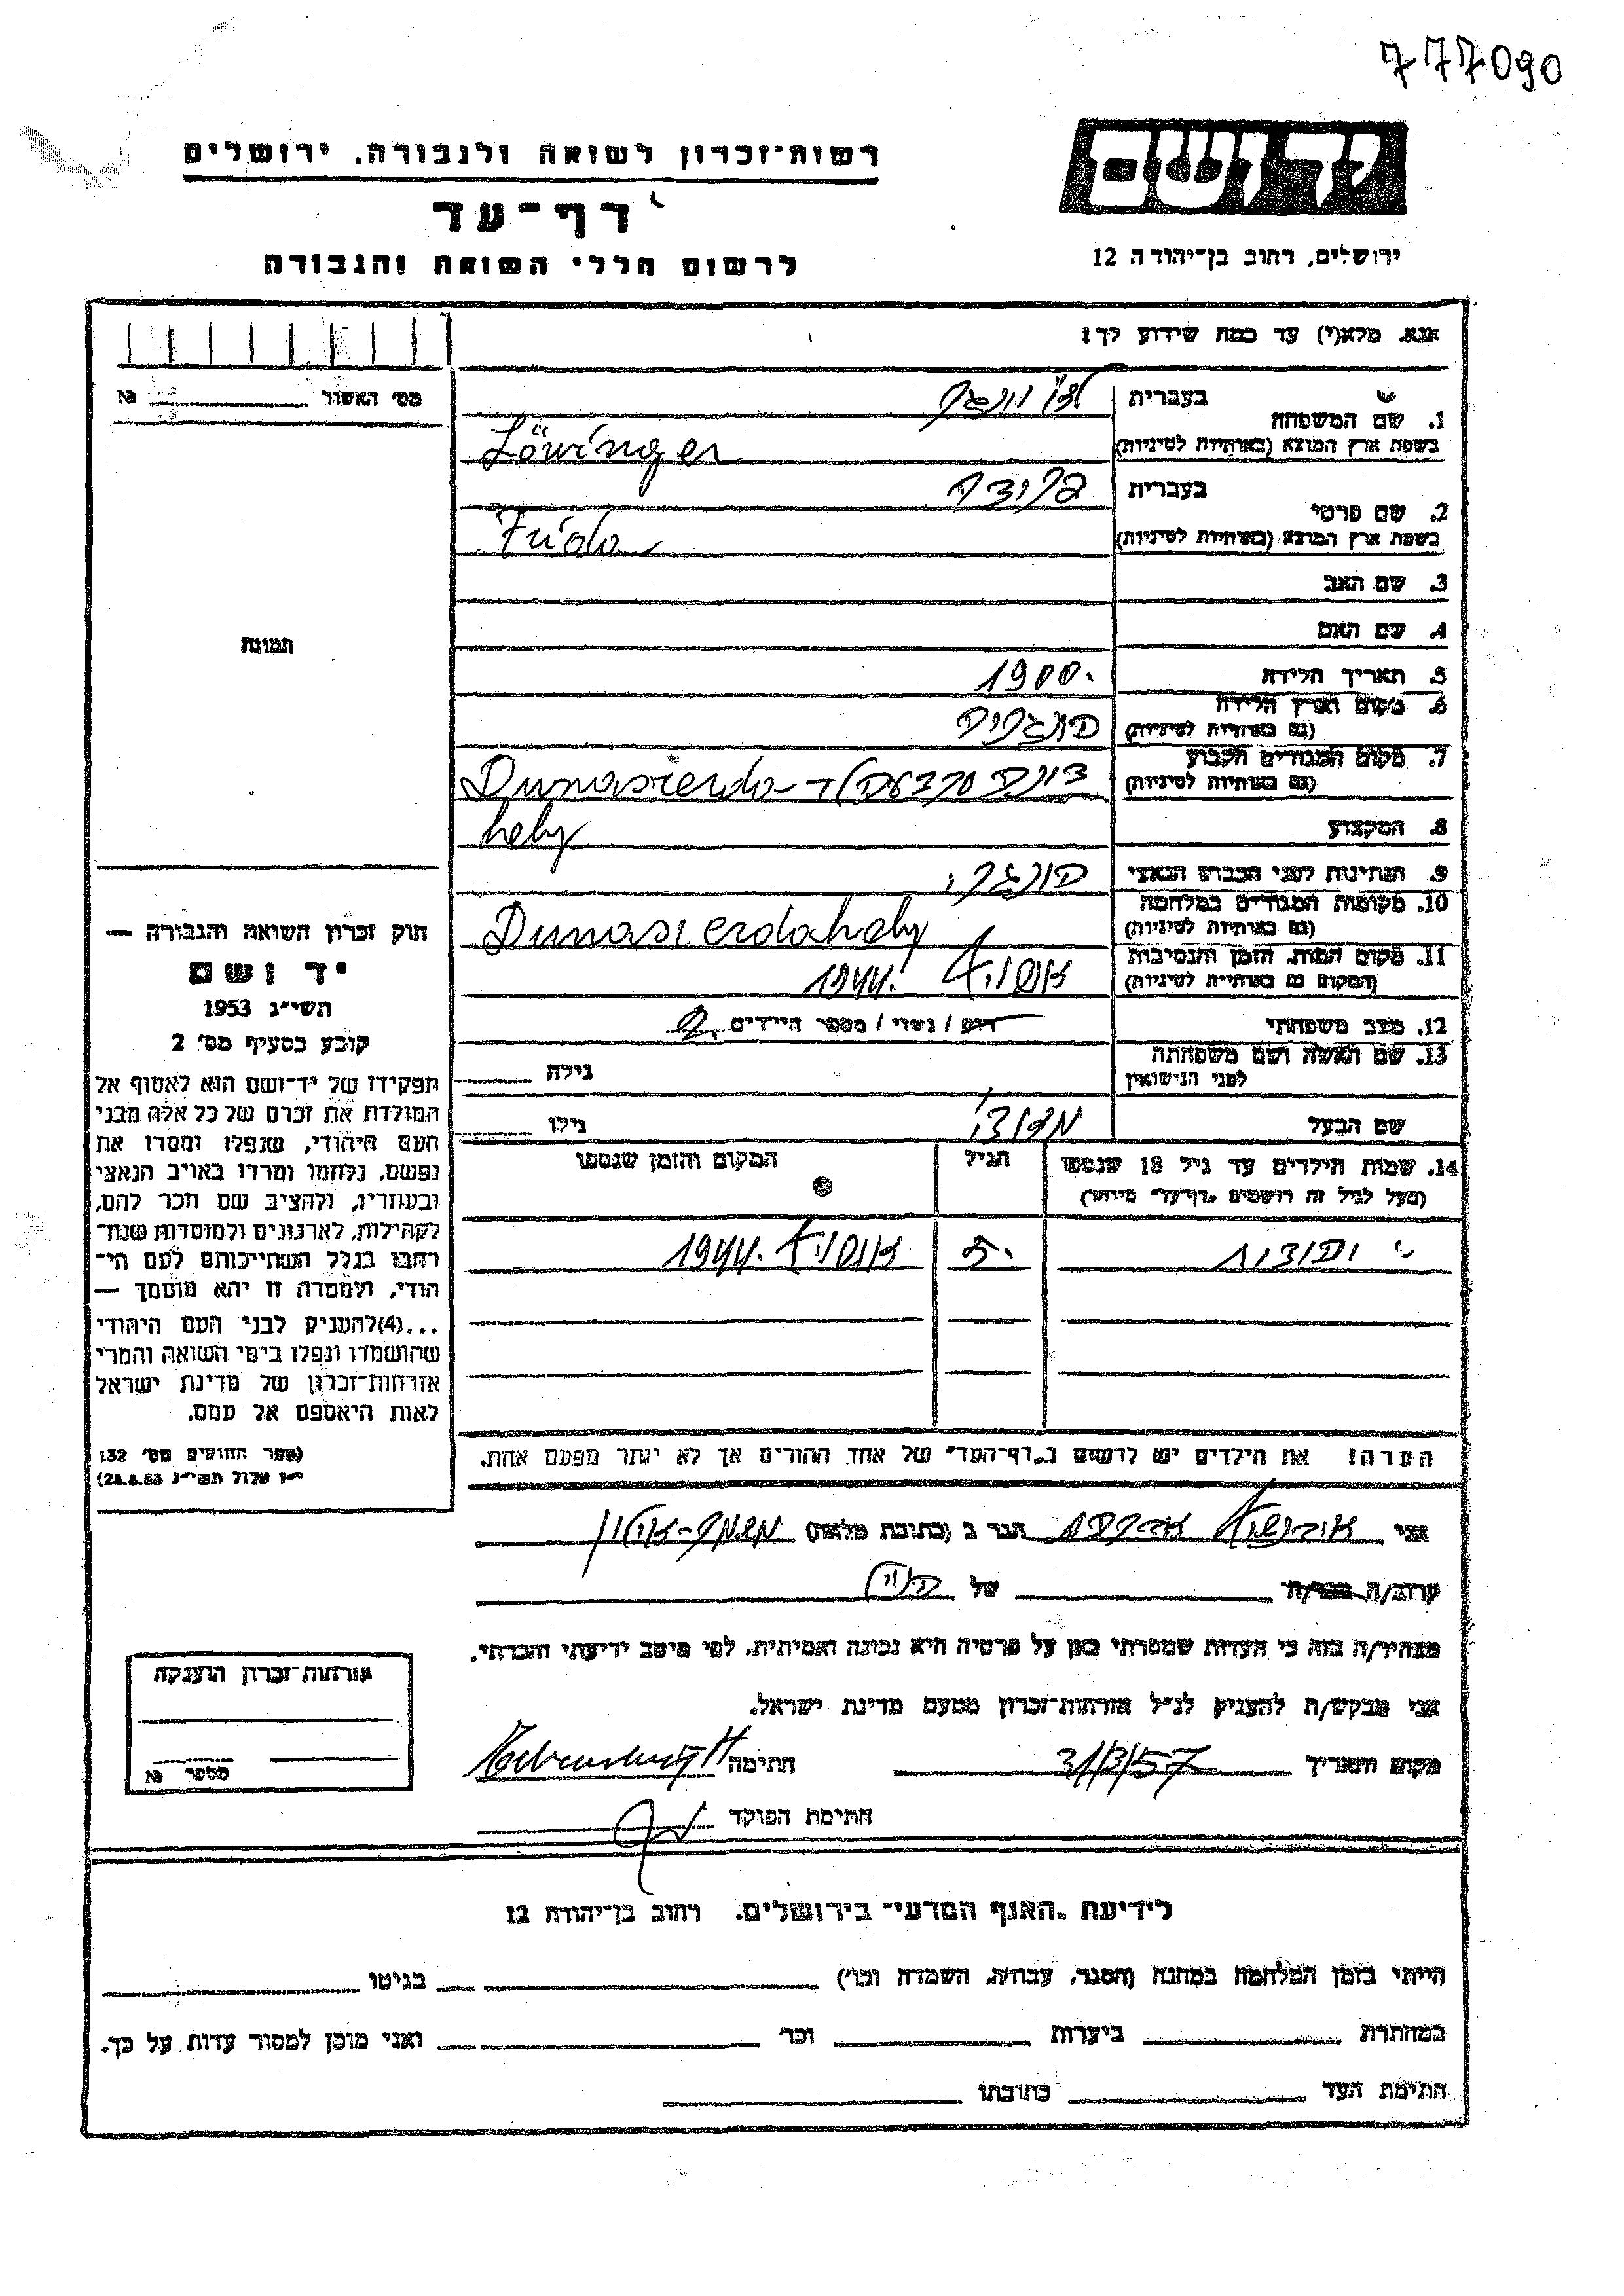 777090
יד ושם
רשות־זכרון לשואה ולגבורה, ירושלים
דף־עד
ירושלים, רחוב בן־יהודה 12
לרשום חללי השואה והגבורה
אנא, מלא(י) עד כמה שידוע לך:
מס' האשור №
1. שם המשפחה
בעברית
בשפת ארץ המוצא (באותיות לטיניות) Löwinger
2. שם פרטי
בעברית פרידה
בשפת ארץ המוצא (באותיות לטיניות) Frida
3. שם האב
4. שם האם
תמונה
5. תאריך הלידה 1900.
6. מקום וארץ הלידה הונגריה
(גם באותיות לטיניות)
7. מקום המגורים הקבוע Dunaszerda-
(גם באותיות לטיניות)
hely
8. המקצוע
9. הנתינות לפני הכבוש הנאצי הונגרי
10. מקומות המגורים במלחמה
(גם באותיות לטיניות) Dunaszerdahely
11. מקום המות, הזמן והנסיבות אושויץ 1944.
(המקום גם באותיות לטיניות)
12. מצב משפחתי רווק / נשוי / מספר הילדים 2.
13. שם האשה ושם משפחתה
לפני הנישואין גילה
שם הבעל גילו
14. שמות הילדים עד גיל 18 שנספו הגיל המקום והזמן שנספו
(מעל לגיל זה רושמים "דף־עד" מיוחד)
יהודית אושויץ 1944.
הערה: את הילדים יש לרשום ב"דף־העד" של אחד ההורים אך לא יותר מפעם אחת.
חוק זכרון השואה והגבורה —
יד ושם
תשי"ג 1953
קובע בסעיף מס' 2
תפקידו של יד־ושם הוא לאסוף אל
המולדת את זכרם של כל אלה מבני
העם היהודי, שנפלו ומסרו את
נפשם, נלחמו ומרדו באויב הנאצי
ובעוזריו, ולהציב שם וזכר להם,
לקהילות, לארגונים ולמוסדות שנח־
רבו בגלל השתייכותם לעם הי־
הודי, ולמטרה זו יהא מוסמך —
...(4) להעניק לבני העם היהודי
שהושמדו ונפלו בימי השואה והמרי
אזרחות־זכרון של מדינת ישראל
לאות היאספם אל עמם.
(ספר החוקים מס' 132
י"ז אלול תשי"ג 28.8.53)
אני הגר ב (כתובת מלאה) משמר-אילון
קרוב/ה מכר/ה של
מצהיר/ה בזה כי העדות שמסרתי כאן על פרטיה היא נכונה ואמיתית, לפי מיטב ידיעתי והכרתי.
אני מבקש/ת להעניק לנ"ל אזרחות־זכרון מטעם מדינת ישראל.
מקום ותאריך 31/3/57 חתימה
חתימת הפוקד
אזרחות־זכרון הוענקה
מספר №
לידיעת "האגף המדעי" בירושלים, רחוב בן־יהודה 12
הייתי בזמן המלחמה במחנה (הסגר, עבודה, השמדה וכו') בגיטו
במחתרת ביערות וכו' ואני מוכן למסור עדות על כך.
חתימת העד כתובתו